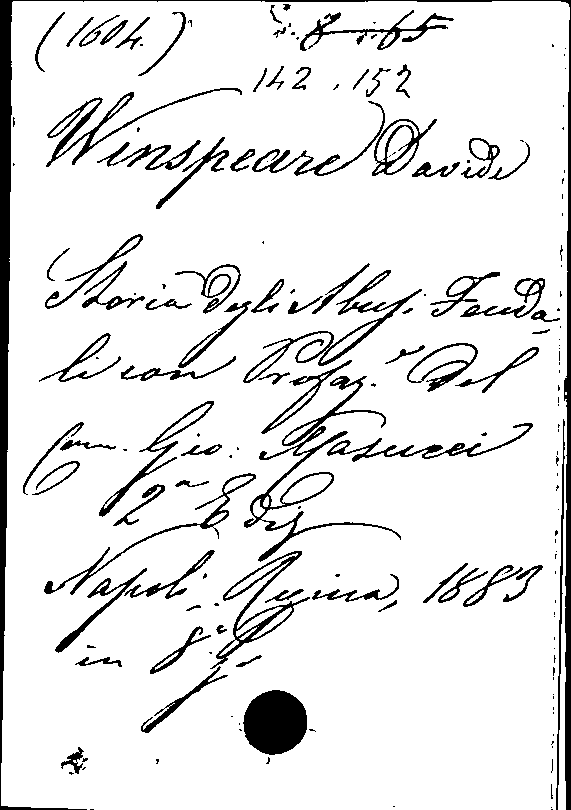 (1604.) 8 . 65
142 . 152
Winspeare Davide
Storia degli Abusi Feuda-
li con Prefaz.e del
Com. Gio: Masucci
2a Ediz
Napoli. Regina, 1883
in 8o